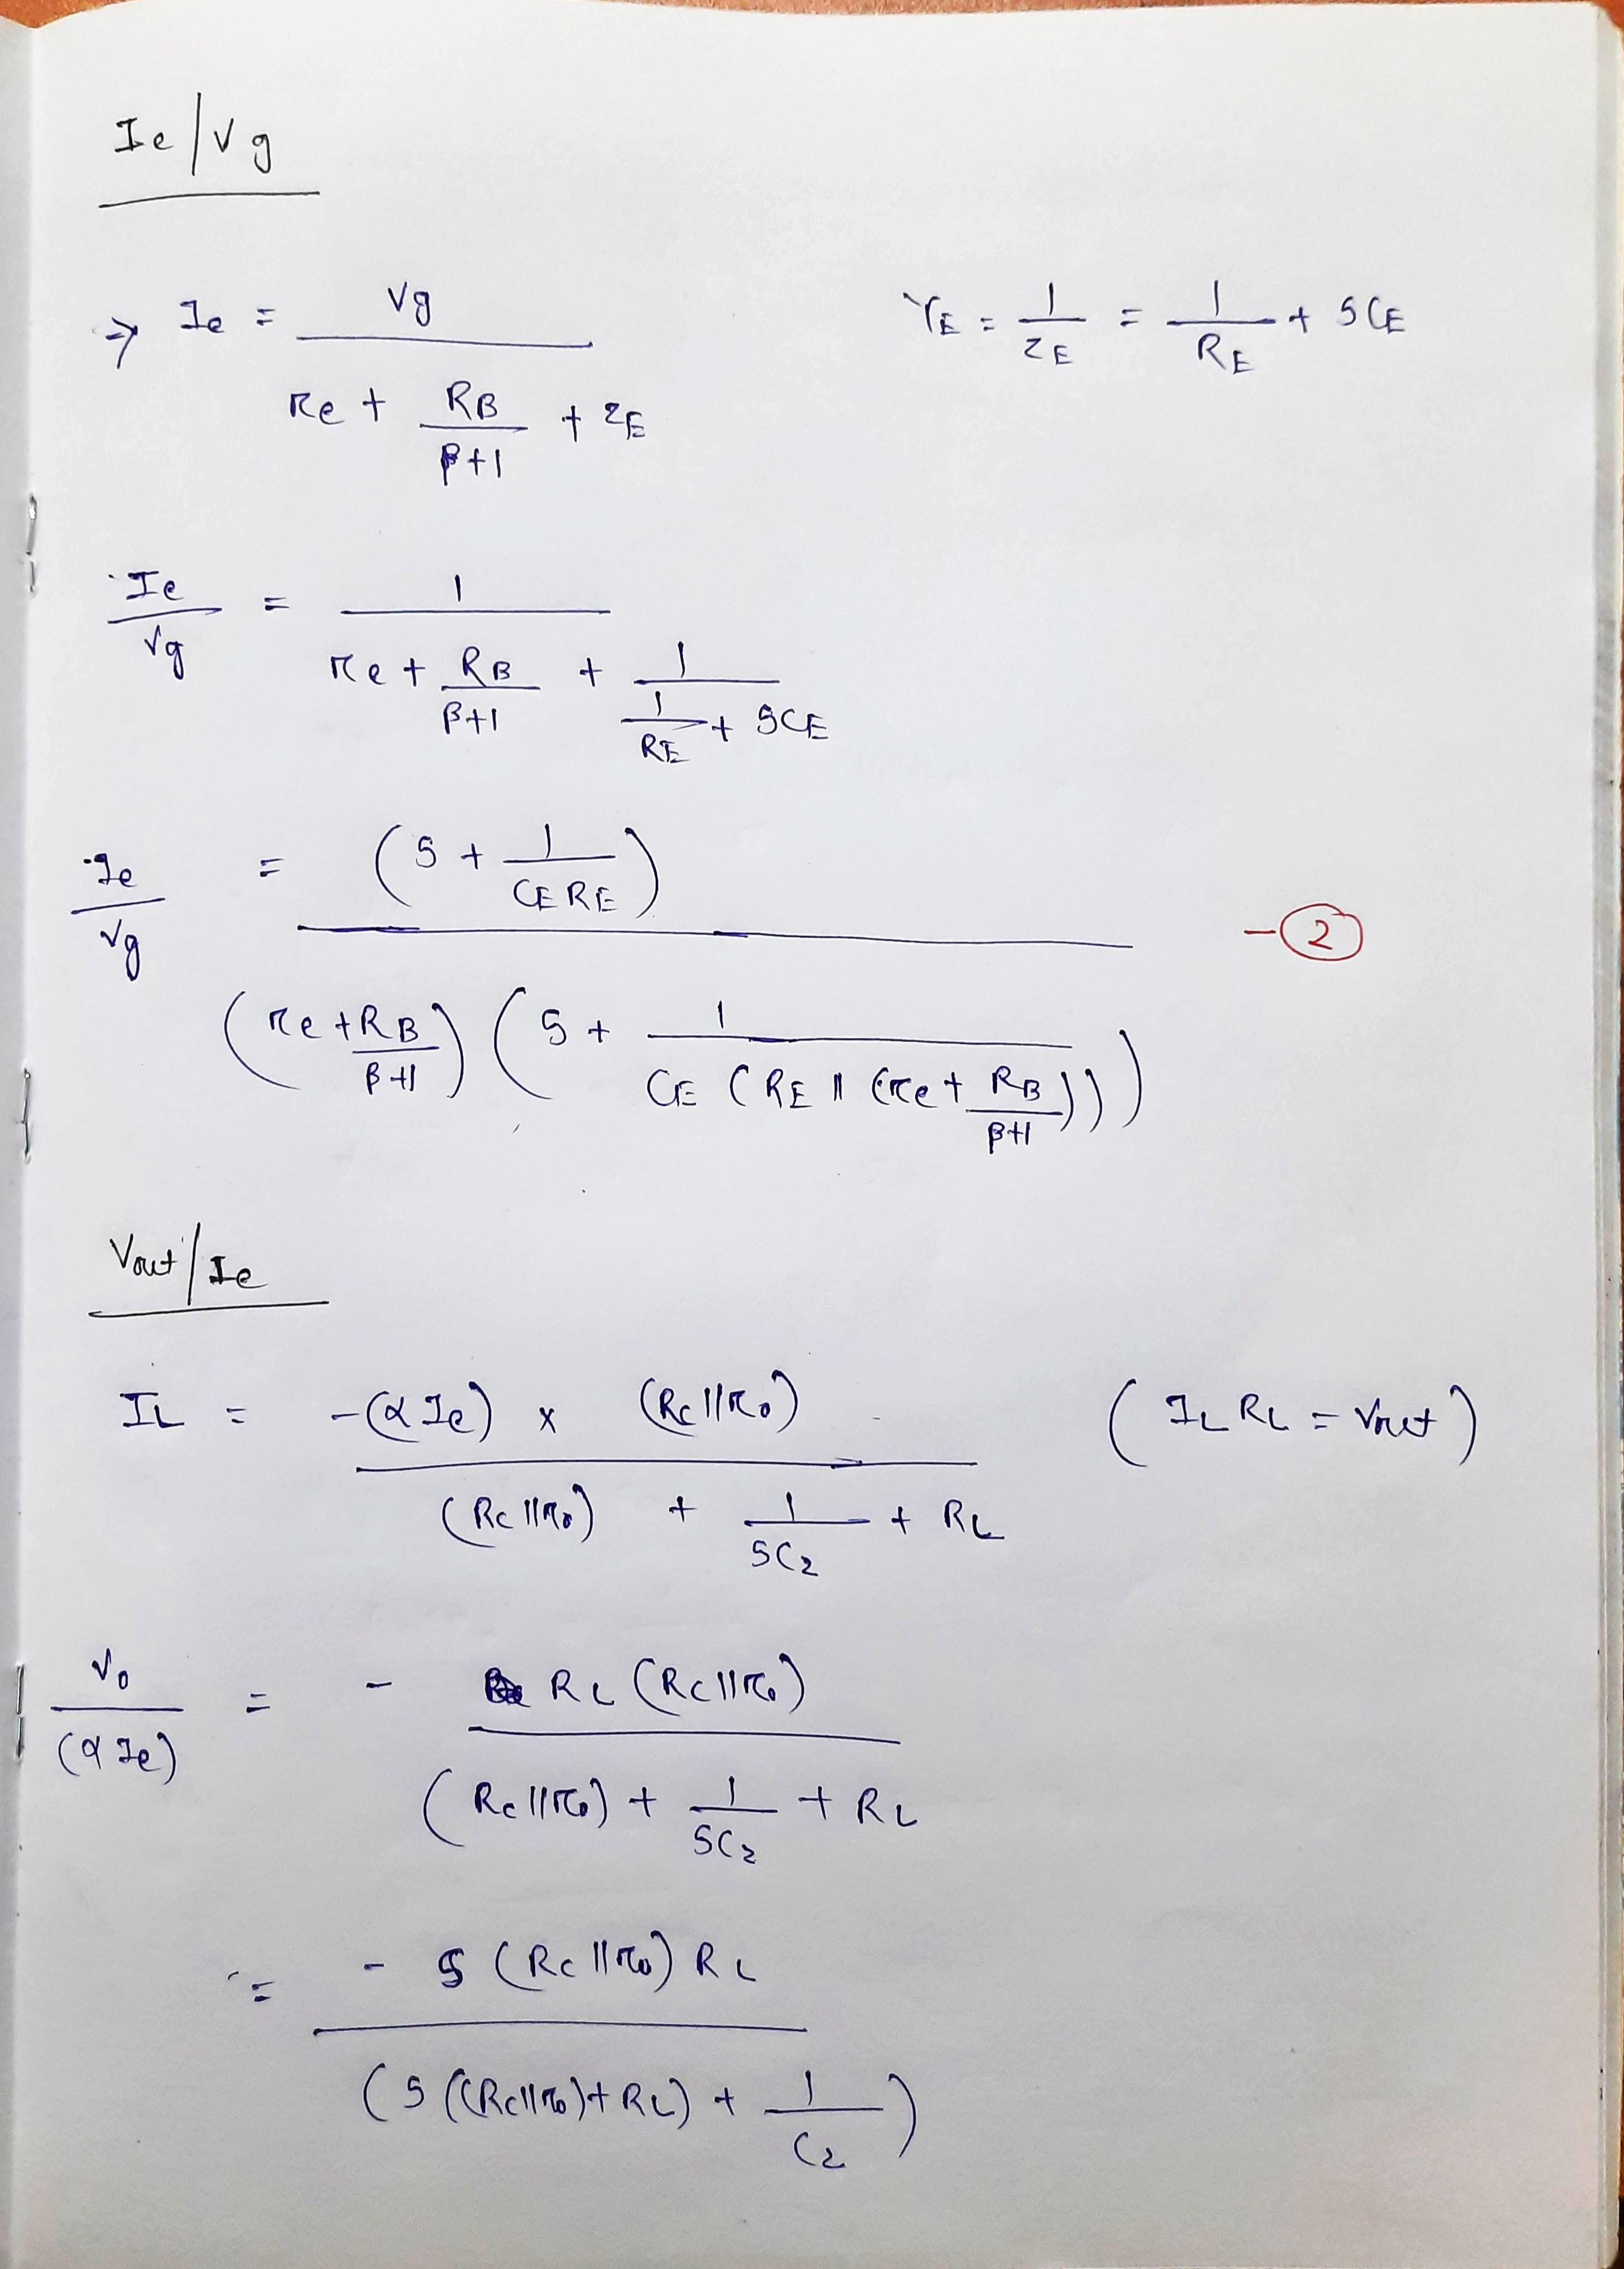 Ie/Vg
⇒ Ie = Vg / (re + RB/(β+1) + ZE)    YE = 1/ZE = 1/RE + SCE
Ie/Vg = 1 / (re + RB/(β+1) + 1/(1/RE + SCE))
Ie/Vg = (S + 1/(CE RE)) / ((re + RB/(β+1)) (S + 1/(CE (RE || (re + RB/(β+1)))))) - ②
Vout/Ie
IL = -(αIe) x (Rc||ro) / ((Rc||ro) + 1/SC2 + RL)    (IL RL = Vout)
Vo/(αIe) = - RL (Rc||ro) / ((Rc||ro) + 1/SC2 + RL
= - S (Rc||ro) RL / (S ((Rc||ro) + RL) + 1/C2)